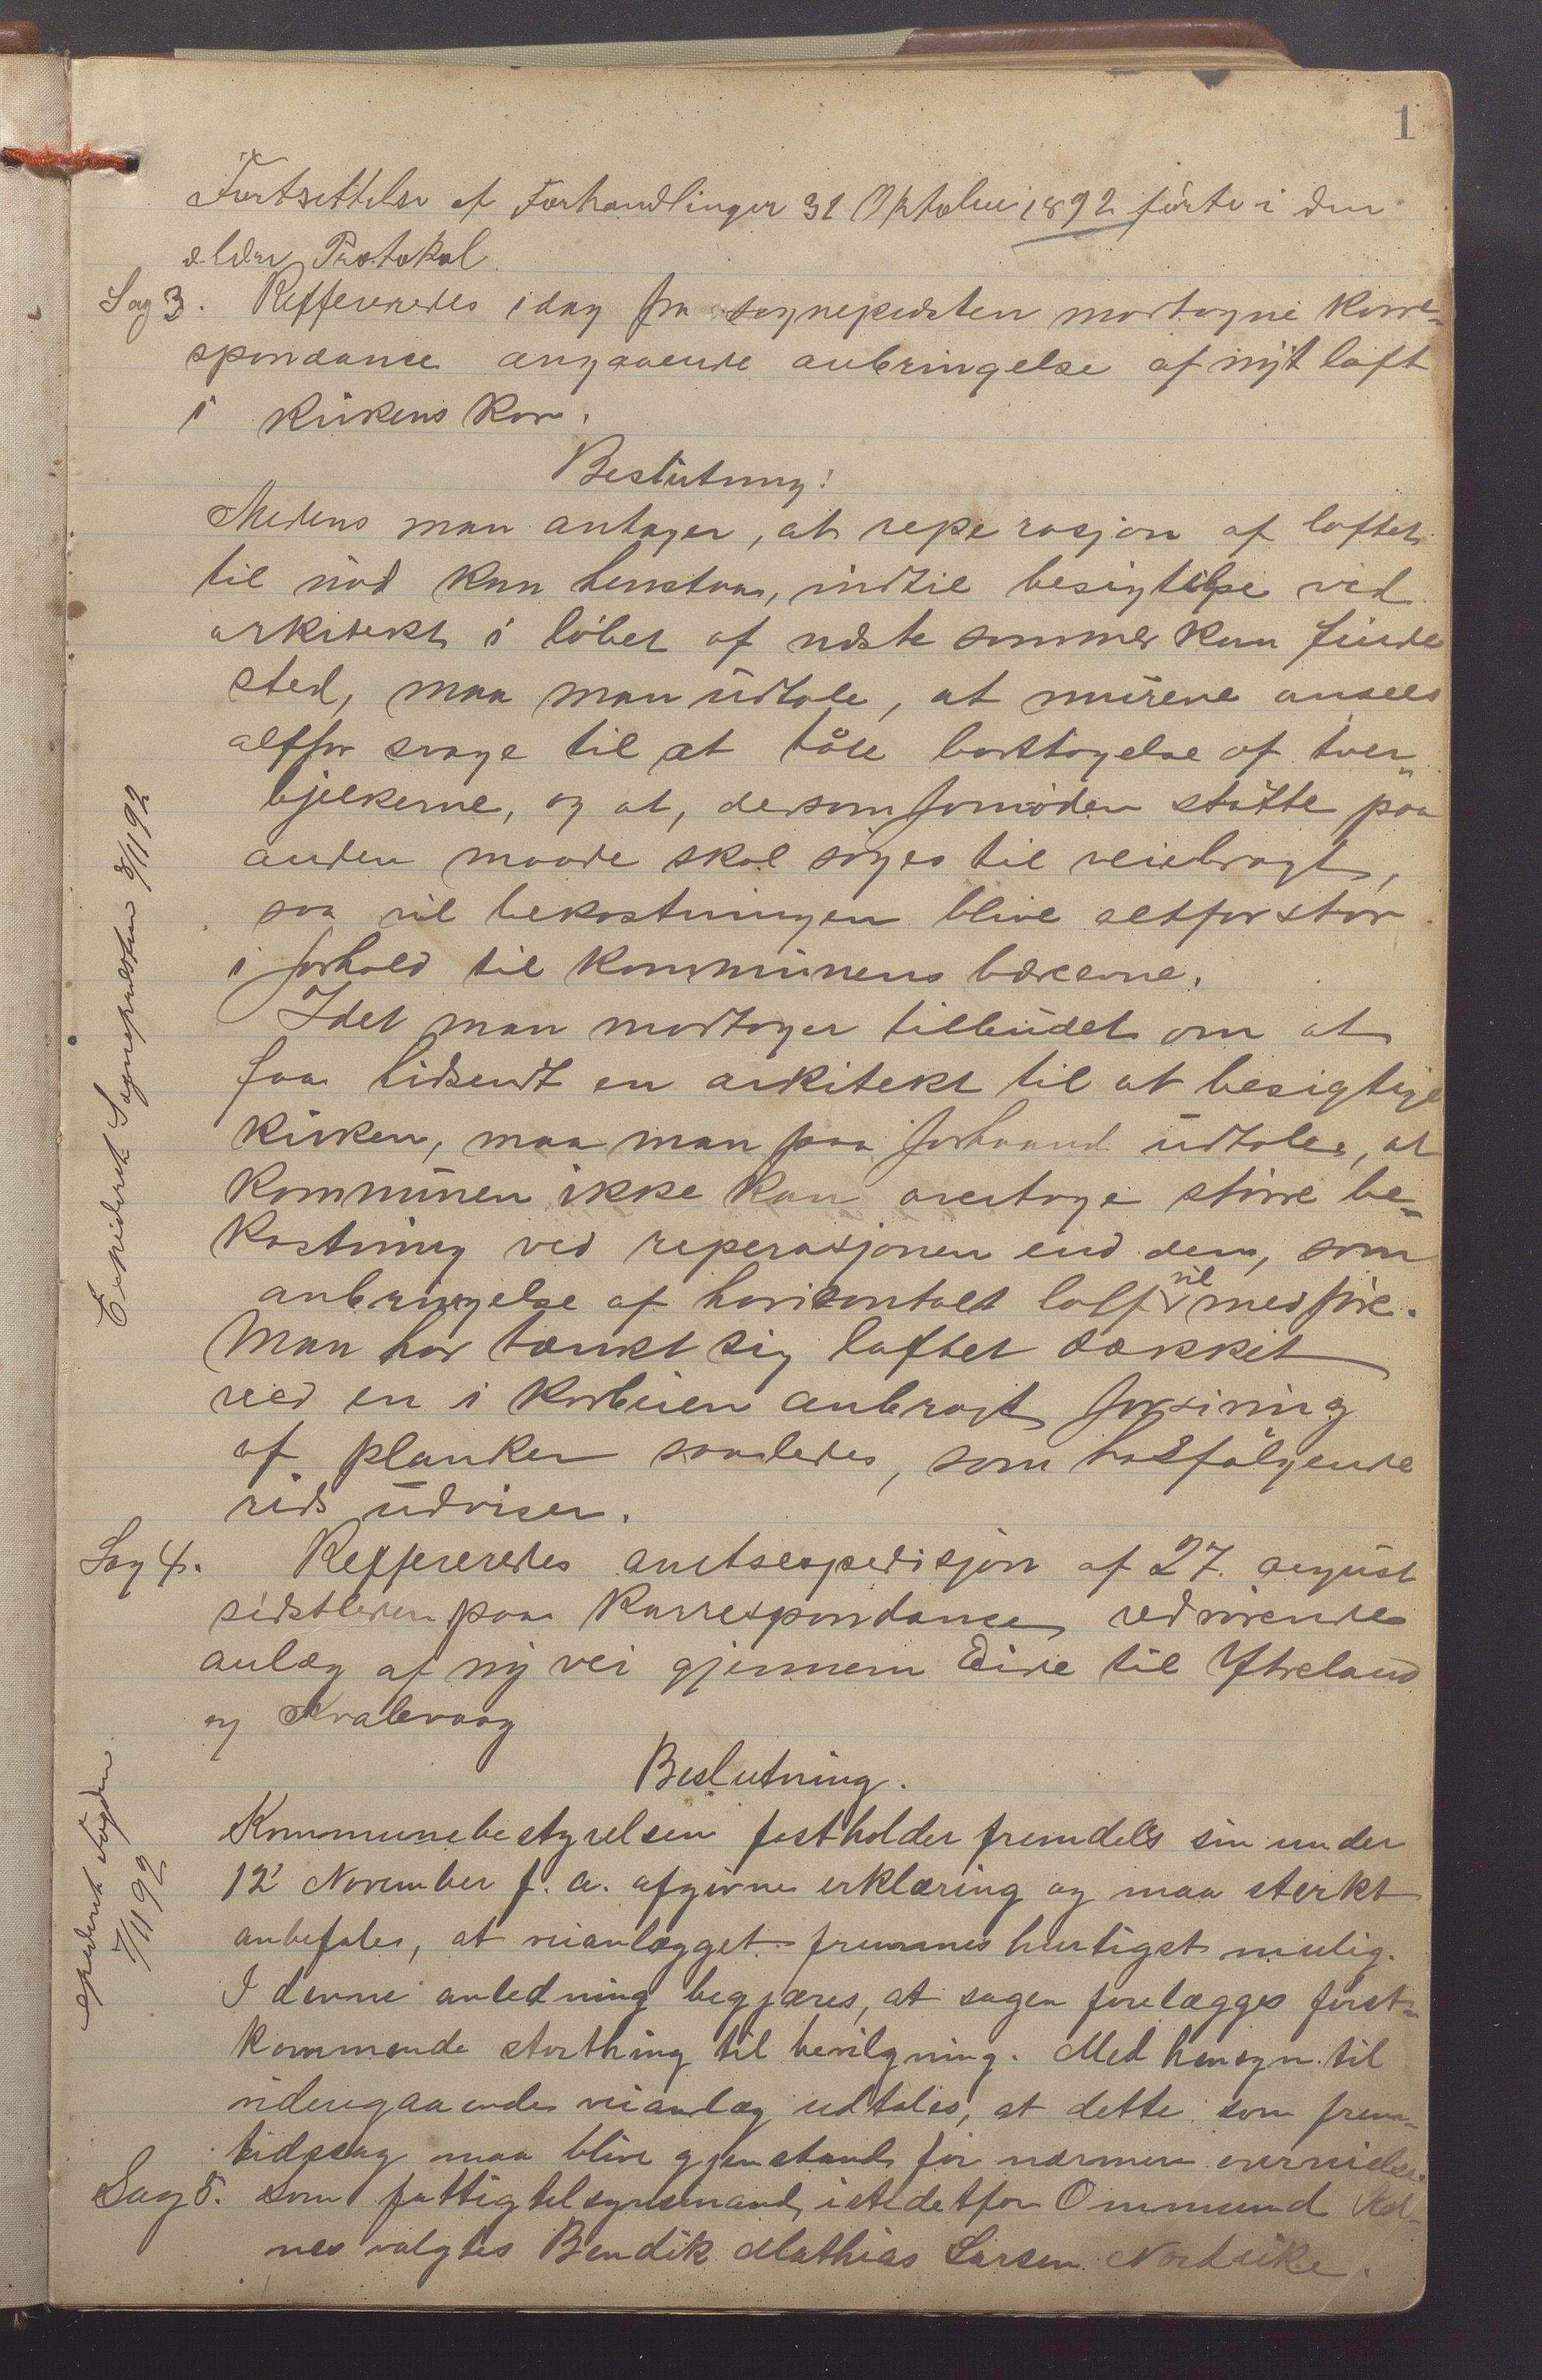 1
Fortsettelse af Forhandlinger 31 Oktober 1892 førte i den
ældre Protokol.
Sag 3. Reffereredes idag fra sogneprästen modtagne korre-
spondance angaaende anbringelse af nyt loft
i kirkens kor.
Beslutning!
Medens man antager, at reperasjon af loftet
til nød kan henstaa, indtil besigtelse ved
arkitekt i løbet af nēste sommer kan finde
sted, maa man udtale, at murene ansees
altfor svage til at tåle borttagelse af tver-
bjelkerne, og at, dersom fornøden støtte paa
anden maade skal søges til veiebragt,
saa vil bekostningen blive altfor stor
i forhold til kommunens bæreevne.
Idet man modtager tilbudet om at
faa hidsendt en arkitekt til at besigtige
kirken, maa man paa forhaand udtale, at
kommunen ikke kan overtage større be-
kostning ved reperasjonen end den, som
anbringelse af horisontalt loft vil medføre.
Man har tænkt sig loftet dækket
ved en i korbuen anbragt forsiring
af planker saaledes, som hosfølgende
rids udviser.
Sag 4. Reffereredes amtsexpedisjon af 27. august
sidstleden paa korrespondance vedrørende
anlæg af ny vei gjennem Eide til Ytreland
og Kvalevaag
Beslutning.
Kommunebestyrelsen fastholder fremdeles sin under
12' November f. a. afgivne erklæring og maa sterkt
anbefale, at veianlægget fremmes hurtigst mulig.
I denne anledning begjæres, at sagen forelægges først-
kommende storthing til bevilgning. Med hensyn til
videregaaende veianlæg udtales, at dette som frem-
tidssag maa blive gjenstand for nærmere overveielse.
Sag 5. Som fattigtilsynsmand istedetfor Ommund
nes valgtes Bendik Mathias Larsen Nordeike.
Expederet Sogneprästen 8/11 92
expederet Fogden
7/11 92